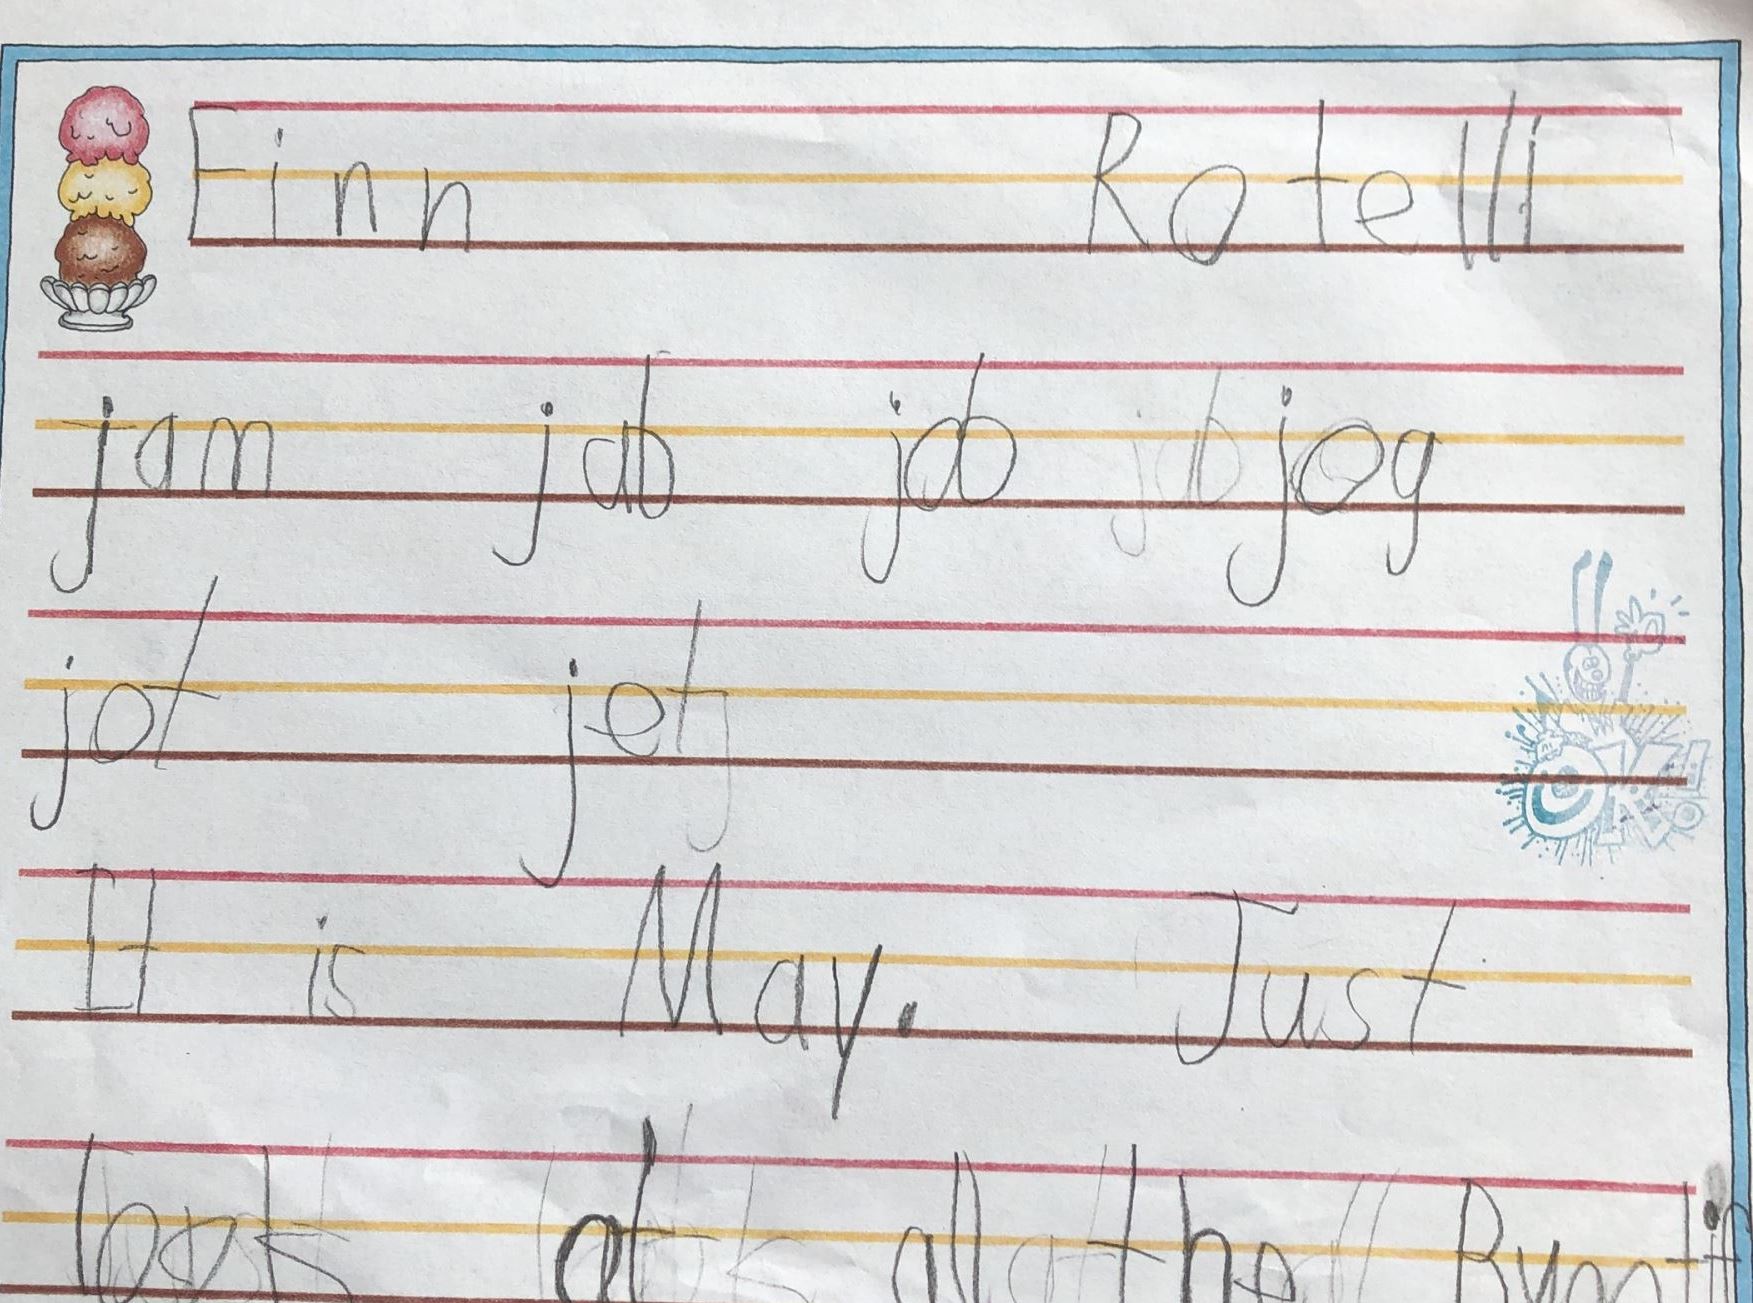 Finn Rotelli
jam jab job jog
jot jet
It is May. Just
look at all the